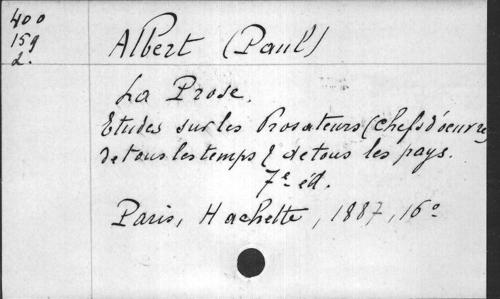 400
159
2.
Albert (Paul)
La Prose.
Etudes sur les Prosateurs (Chefs d'oeuvre
de tous les temps & de tous les pays.
7e éd.
Paris, Hachette, 1887, 16o